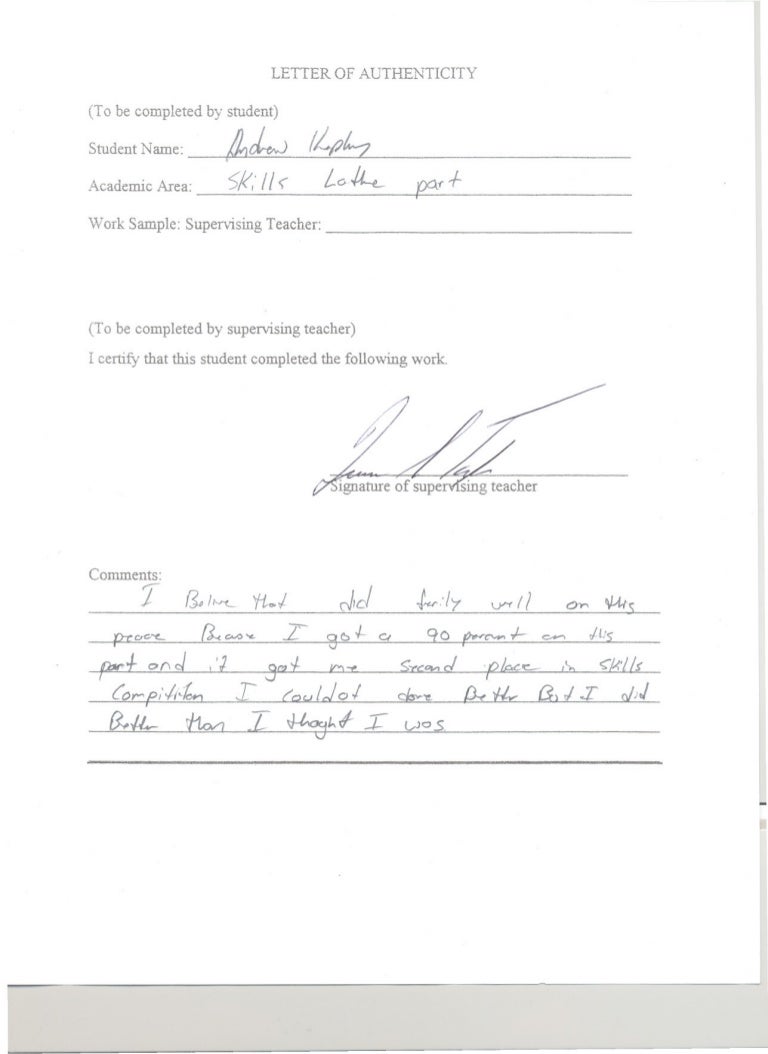 LETTER OF AUTHENTICITY
(To be completed by student)
Student Name: Andrew
Academic Area: Skills Lathe part
Work Sample: Supervising Teacher:
(To be completed by supervising teacher)
I certify that this student completed the following work.
Signature of supervising teacher
Comments:
I Belive that did farily well on this
peace Becase I got a 90 percent on this
part and it got me Second place in skills
Compitition I Couldot done Better But I did
Better than I thoght I was